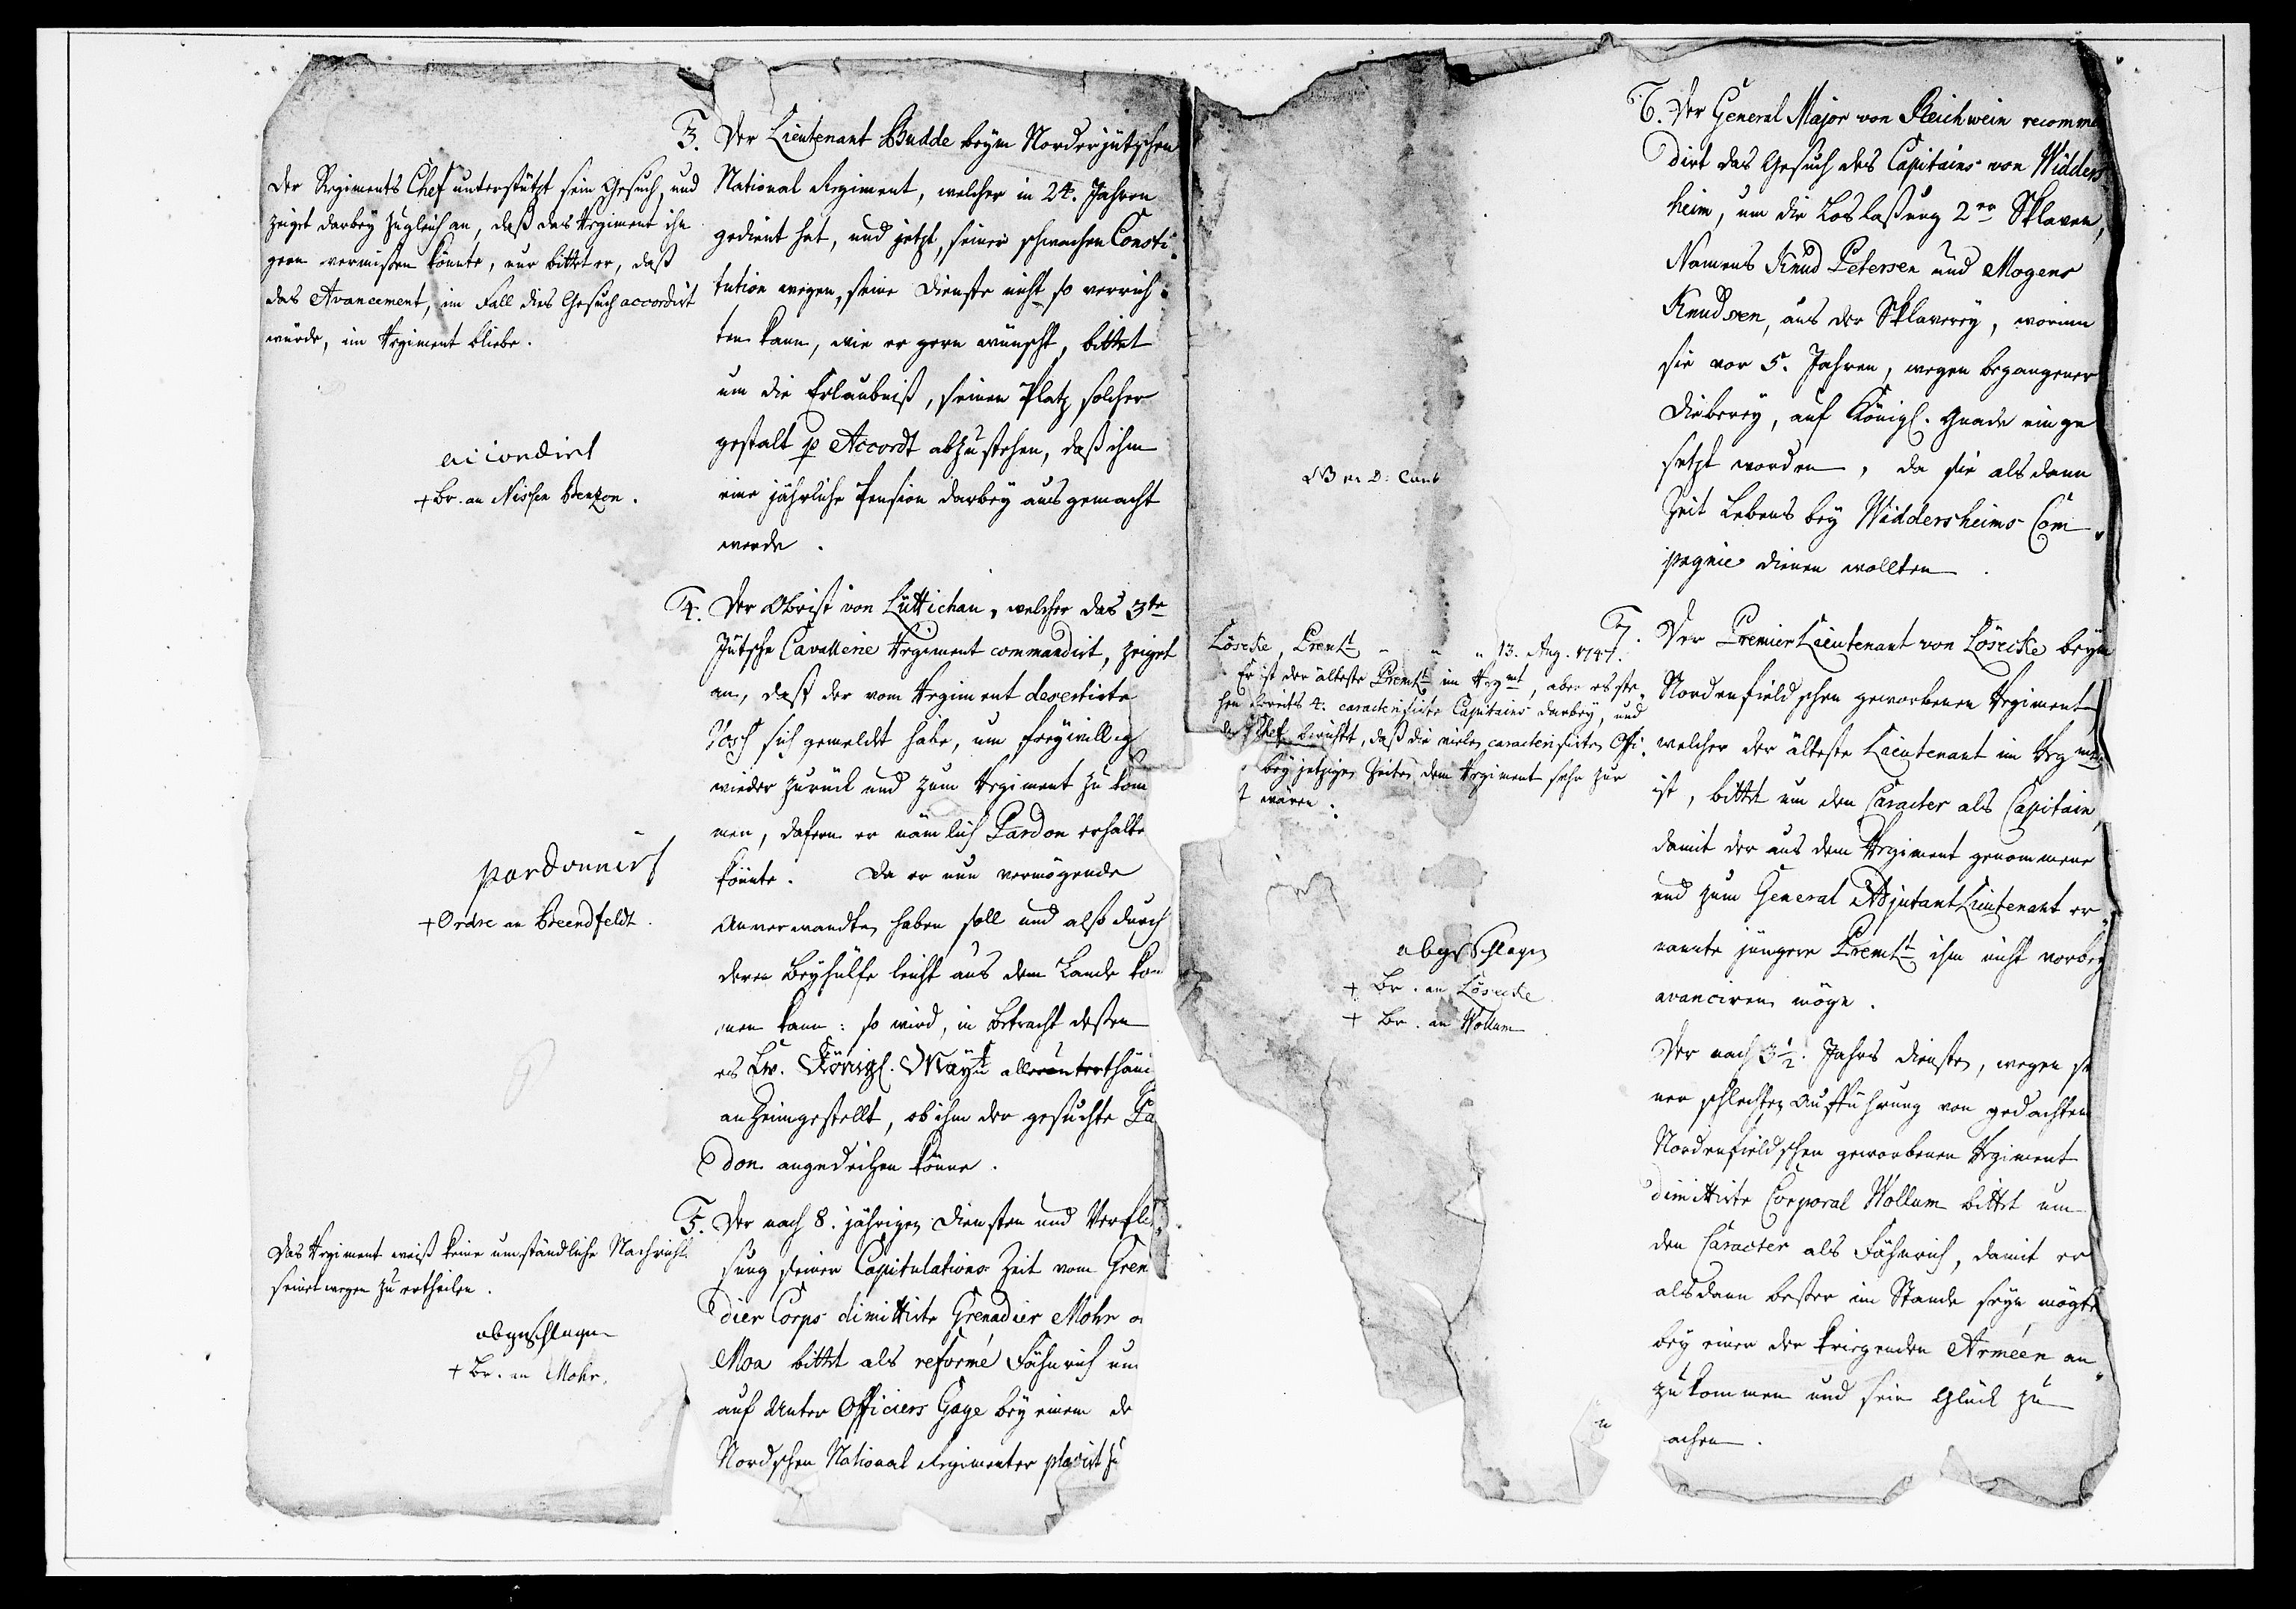 3. Der Lieutenant Budde beym Norderjütschen
National Regiment, welcher in 24. Jahren
gedient hat, und jetzt, seiner schwachen Consti-
tution wegen, seine Dienste nicht so verrich-
ten kann, wie er gern wünscht, bittet
um die Erlaubniß, seinen Platz solcher
gestalt p Accordt abzustehen, daß ihm
eine jährliche Pension darbey ausgemacht
werde.
Der Regiments Chef unterstützt sein Gesuch, und
zeiget darbey zugleich an, daß das Regiment ihn
gern vermißen könnte, nur bittet er, daß
das Avancement, im Fall dies Gesuch accordirt
würde, im Regiment bliebe.
accordirt
+ Br. an Nissen Benzon.
4. Der Obrist von Lüttichau, welcher das 3te
Jütsche Cavallerie Regiment commandirt, zeiget
an, daß der vom Regiment desertirte
Posch sich gemeldet habe, um freywillig
wieder zurück und zum Regiment zu kom
men, dafern er nämlich Pardon erhalte
könnte. Da er nun vermögende
Anverwandten haben soll und also durch
deren Beyhülfe leicht aus dem Lande kom
men kann: so wird, in Betracht deßen
es Ew. Königl. Mayt allerunterthäni
anheimgestellt, ob ihm der gesuchte Pa
don angedeihen könne.
pardonnirt
+ Ordre an Breendfeldt.
5. Der nach 8. jährigen Diensten und Verfli
ßung seiner Capitulations Zeit vom Gren
dier Corps dimittirte Grenadier Mohr o
Moa bittet als reformé Fähnrich un
auf Unter Officiers Gage bey einem de
Nordschen National Regimenter placirt zu
Das Regiment weiß keine umständliche Nachricht
seinetwegen zu ertheilen.
abgeschlagen
+ Br. an Mohr.
6. Der General Major von Reichwein recomme
dirt das Gesuch des Capitains von Widders
heim, um die Loslaßung 2er Sklaven,
Namens Knud Petersen und Mogens
Knudsen, aus der Sklaverey, worinn
sie vor 5. Jahren, wegen begangener
Dieberey, auf Königl. Gnade einge
setzt worden, da sie alsdann
Zeit Lebens bey Widdersheims Com-
pagnie dienen wollten.
7. Der Premier Lieutenant von Lösecke beym
Nordenfieldschen geworbenen Regiment
welcher der älteste Lieutenant im Regmt
ist, bittet um den Caracter als Capitain,
damit der aus dem Regiment genommene
und zum General Adjutant Lieutenant er-
nannte jüngere Premlt ihm nicht vorbey
avanciren möge.
Lösecke, Premlt - " " 13. Aug. 1747.
Er ist der älteste Premlt im Regmt, aber es ste-
hen bereits 4. caracterisirte Capitains darbey, und
der Chef berichtet, daß die vielen caracterisirten Offi-
bey jetzigen Zeiten dem Regiment sehr zur
t wären.
abgeschlagen
+ Br. an Lösecke
+ Br. an Wollum
Der nach 3½. Jahrs Diensten, wegen se
ner schlechten Aufführung von gedachtem
Nordenfieldschen geworbenen Regiment
dimittirte Corporal Wollum bittet um
den Caracter als Fähnrich, damit er
alsdann beßer im Stande seyn mögte
bey einer der kriegenden Arméen an-
zukommen und sein Glück zu
achen.